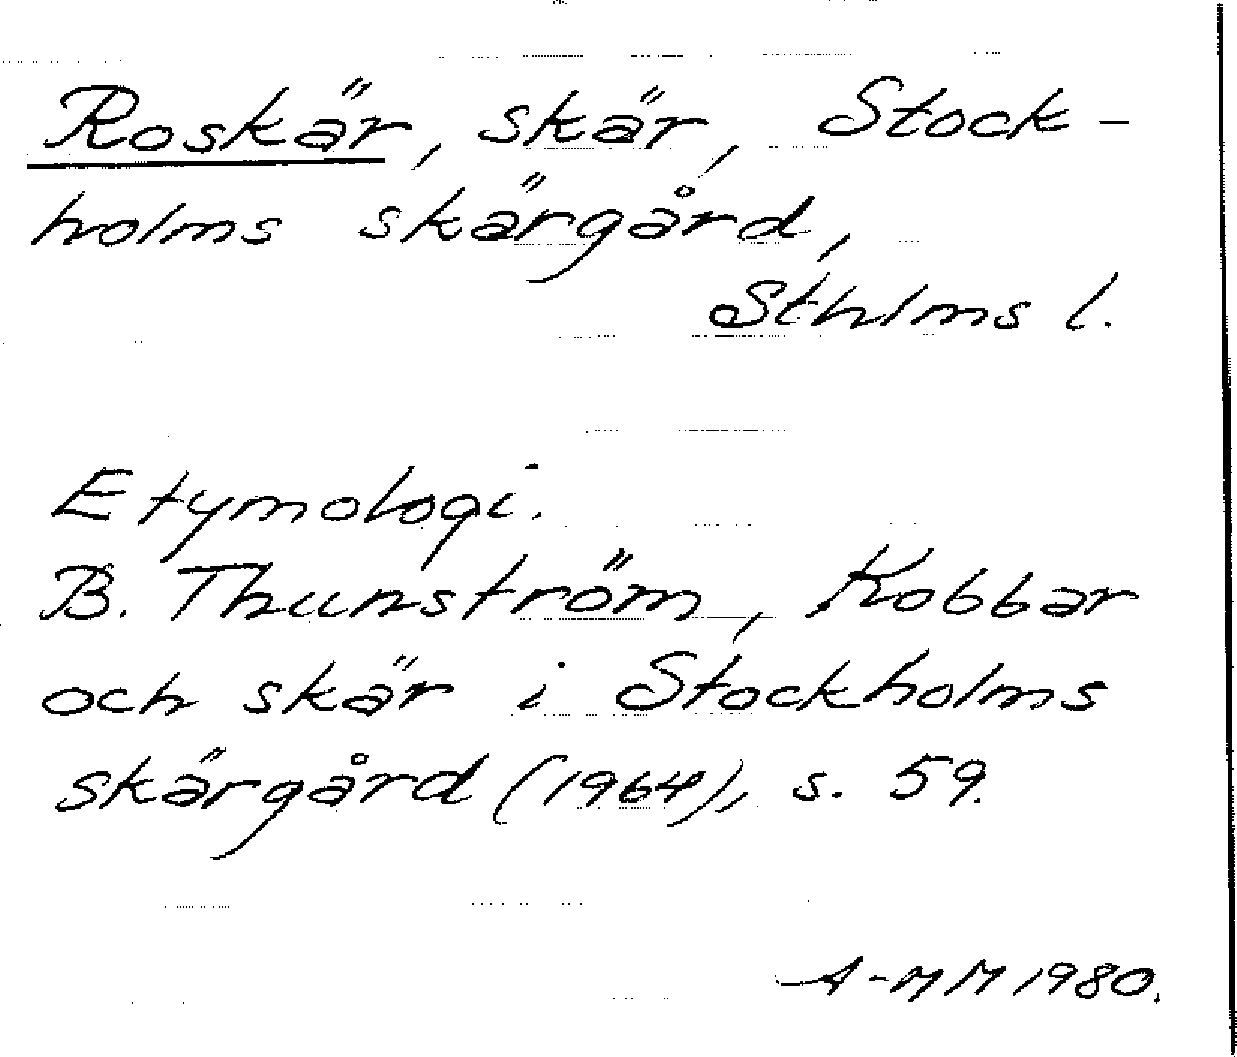 Roskär, skär, Stock-
holms skärgård,
Sthlms l.
Etymologi.
B. Thunström, Kobbar
och skär i Stockholms
skärgård (1964), s. 59.
A-MM 1980.